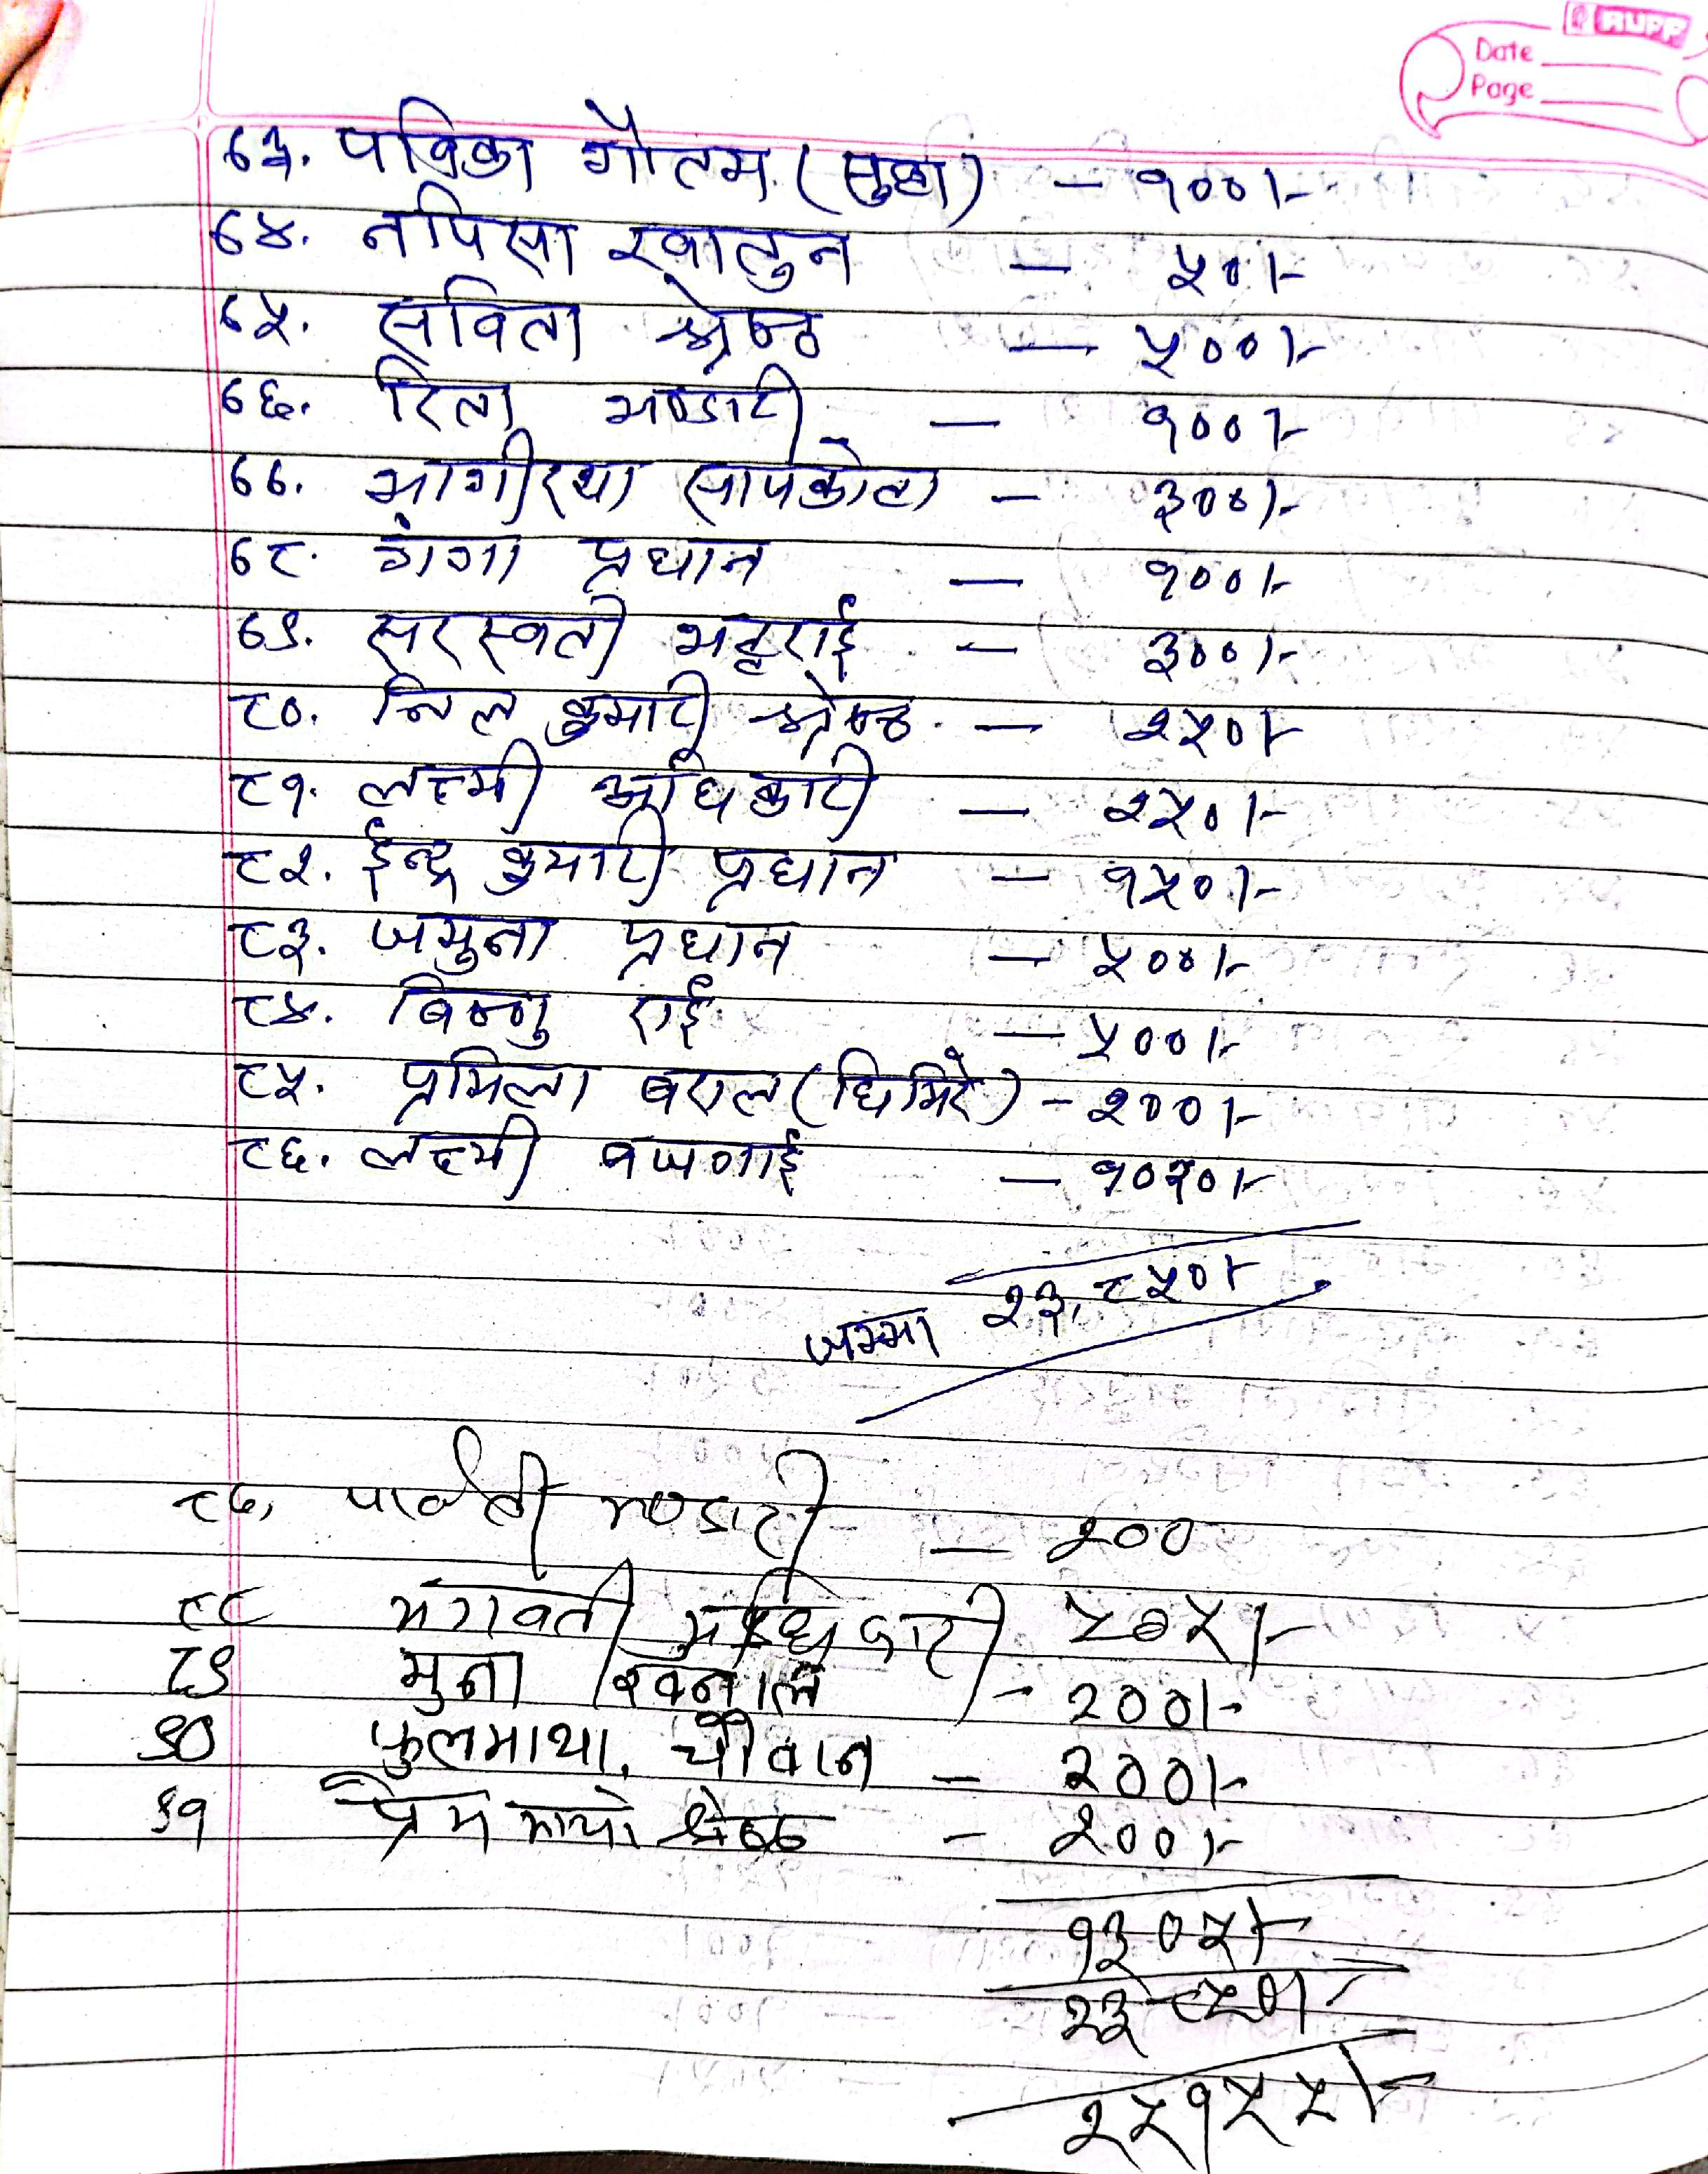 RUPP
Date
Page
७३. पवित्रा गौतम (सुब्बा) - १००।-
७४. नपिसा खातुन - ५०।-
७५. सविता श्रेष्ठ - ५००।-
७६. रिता भण्डारी - १००।-
७७. भागीरथा सापकोटा - ३००।-
७८. गंगा प्रधान - १००।-
७९. सरस्वती भट्टराई - ३००।-
८०. निल कुमारी श्रेष्ठ - २५०।-
८१. लक्ष्मी अधिकारी - २५०।-
८२. ईन्द्र कुमारी प्रधान - १५०।-
८३. जमुना प्रधान - ५००।-
८४. बिष्णु राई - ५००।-
८५. प्रमिला बराल (घिमिरे) - २००।-
८६. लक्ष्मी बजगाई - १०२०।-
जम्मा २३,८५०।-
८७, पार्वती भण्डारी - २००
८८ भगवती अधिकारी ५०५।-
८९ मुना खनाल - २००।-
९० फुलमाया. चौवान - २००।-
९१ प्रेम माया श्रेष्ठ - २००।-
१३०५।-
२३८५०।-
२५१५५।-